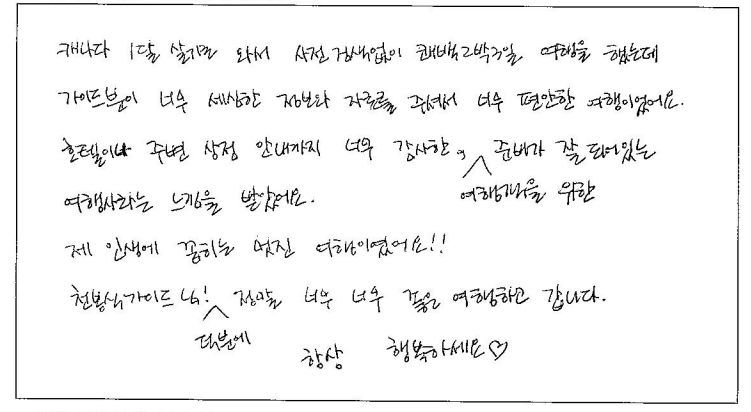 캐나다 1달 살기로 와서 사전검색없이 퀘백2박3일 여행을 했는데
가이드분이 너무 세심한 정보와 자료를 주셔서 너무 편안한 여행이었어요.
호텔이나 주변 상점 안내까지 너무 감사한, 준비가 잘 되어있는
여행객을 위한
여행사라는 느낌을 받았어요.
제 인생에 꼽히는 멋진 여행이였어요!!
천봉식가이드님! 정말 너무 너무 좋은 여행하고 갑니다.
덕분에
항상 행복하세요♡